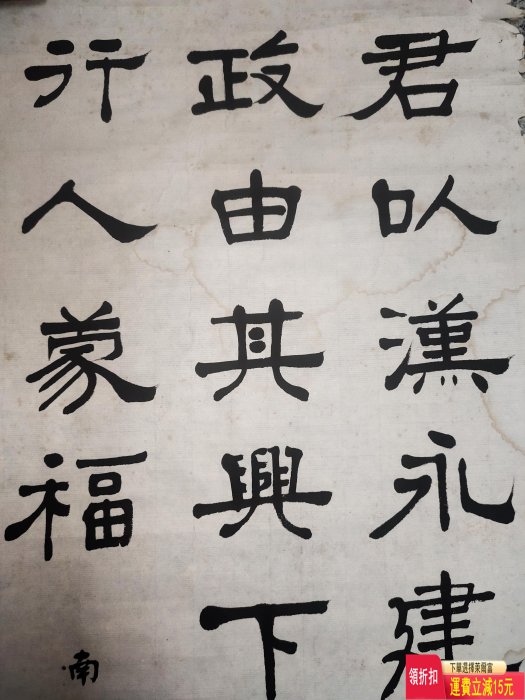 君以漢永建
政由其興下
行人蒙福
南
下單選擇萊爾富
領折扣
運費立減15元